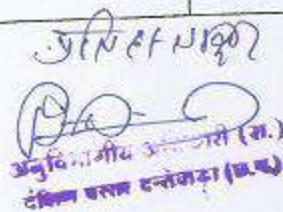 प्रतिहस्ताक्षर
अनुविभागीय अधिकारी (रा.)
दक्षिण बस्तर दन्तेवाड़ा (छ.ग.)